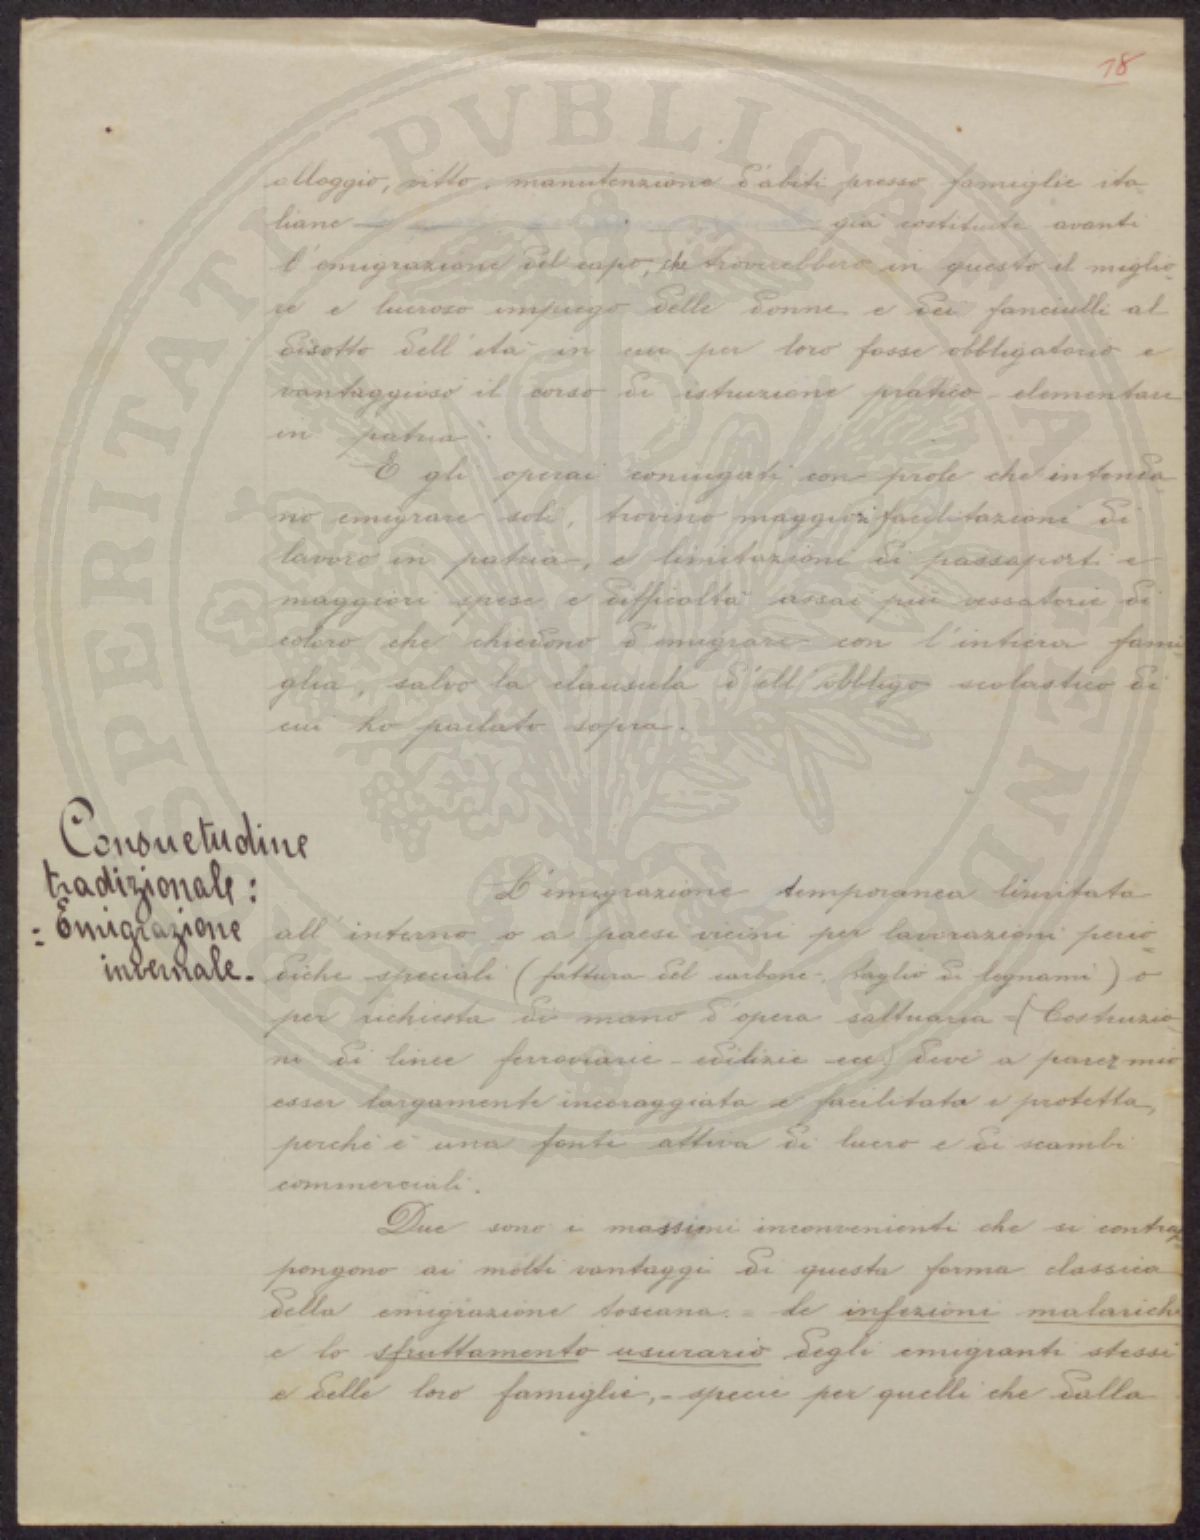 18
alloggio, vitto, manutenzione d'abiti presso famiglie ita-
liane già costituite avanti
l'emigrazione del capo, che troverebbero in questo il miglio-
re e lucroso impiego delle donne e dei fanciulli al
disotto dell'età in cui per loro fosse obbligatorio e
vantaggioso il corso di istruzione pratico-elementare
in patria.
E gli operai coniugati con prole che intenda-
no emigrare soli, trovino maggiori facilitazioni di
lavoro in patria, e limitazioni di passaporti e
maggiori spese e difficoltà assai più vessatorie di
coloro che chiedono d'emigrare con l'intiera fami-
glia, salvo la clausula d'ell'obbligo scolastico di
cui ho parlato sopra.
Consuetudine
tradizionale:
= Emigrazione
invernale.
L'emigrazione temporanea limitata
all'interno o a paesi vicini per lavorazioni perio-
diche speciali (fattura del carbone - taglio di legnami) o
per richiesta di mano d'opera saltuaria = (Costruzio-
ni di linee ferroviarie - edilizie ecc) deve a parer mio
esser largamente incoraggiata e facilitata e protetta,
perchè è una fonte attiva di lucro e di scambi
commerciali.
Due sono i massimi inconvenienti che si contrap-
pongono ai molti vantaggi di questa forma classica
della emigrazione toscana. = le infezioni malariche
e lo sfruttamento usurario degli emigranti stessi
e delle loro famiglie, - specie per quelli che dalla
PROSPERITATI PVBLICAE AVGENDAE